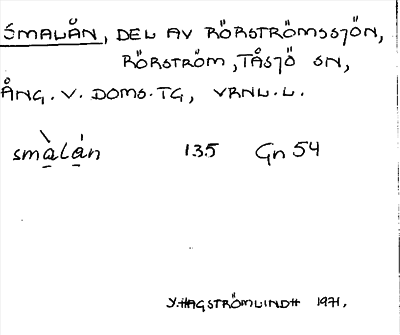 SMALÅN, DEL AV RÖRSTRÖMSSJÖN,
RÖRSTRÖM, TÅSJÖ SN,
ÅNG. V. DOMS. TG, VRNL. L.
smàlán 135 Gn 54
Y. HAGSTRÖMLINDH 1971.